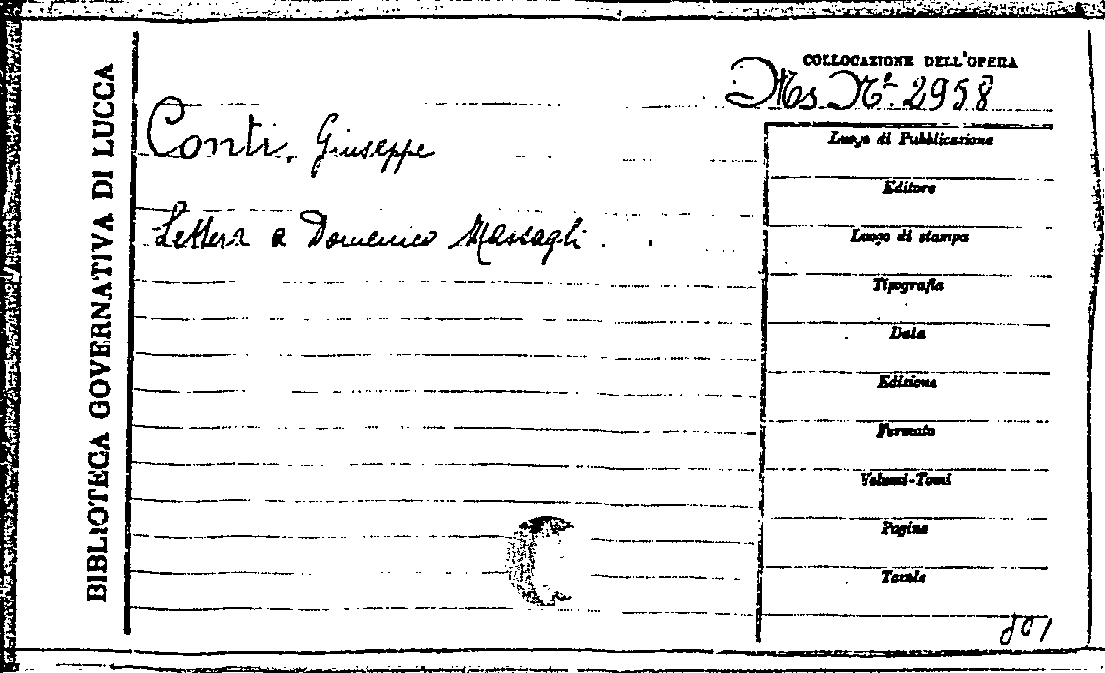 BIBLIOTECA GOVERNATIVA DI LUCCA
COLLOCAZIONE DELL'OPERA
Ms. Nº 2958
Conti, Giuseppe
Lettera a Domenico Massagli.
Luogo di Pubblicazione
Editore
Luogo di stampa
Tipografia
Data
Edizione
Formato
Volumi-Tomi
Pagine
Tavole